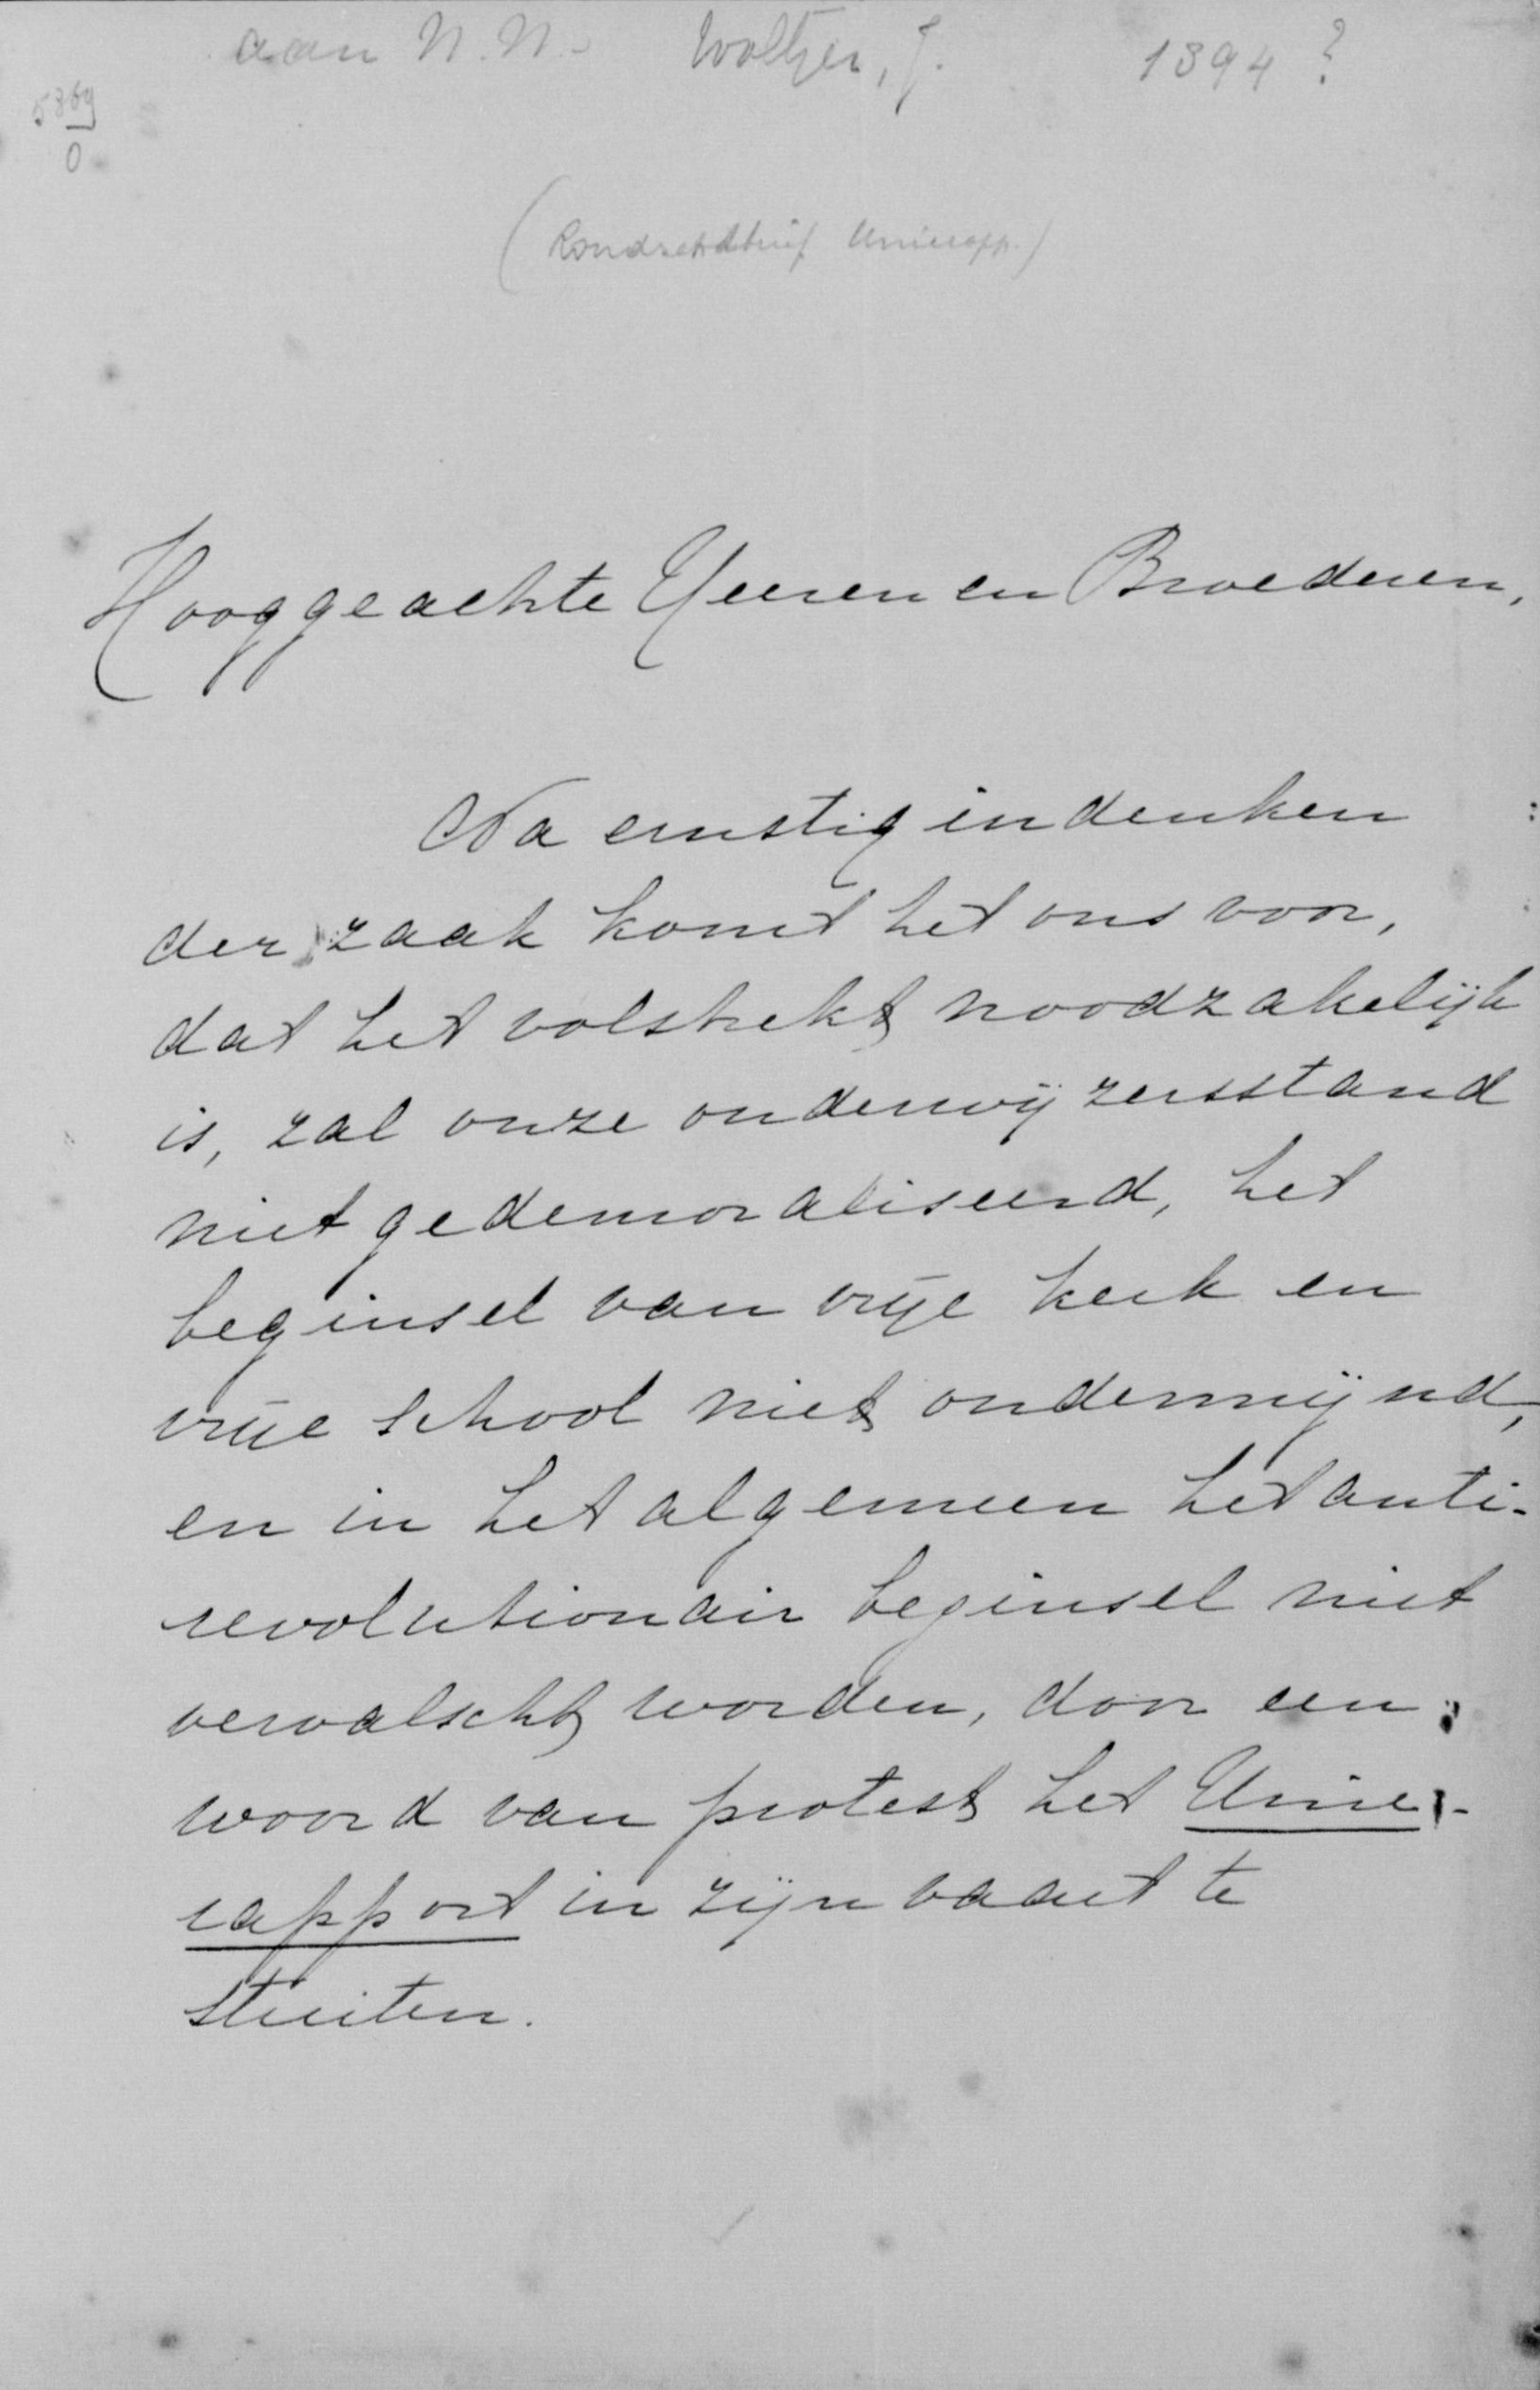 aan N.N. Woltjer, J. 1894?
0
(Rondzendbrief Unierapp.)
Hooggeachte Heeren en Broederen,
Na ernstig indenken
der zaak komt het ons voor,
dat het volstrekt noodzakelijk
is, zal onze onderwijzersstand
niet gedemoraliseerd, het
beginsel van vrije kerk en
vrije school niet ondermijnd,
en in het algemeen het anti-
revolutionair beginsel niet
vervalscht worden, door een
woord van protest het Unie-
rapport in zijn vaart te
stuiten.